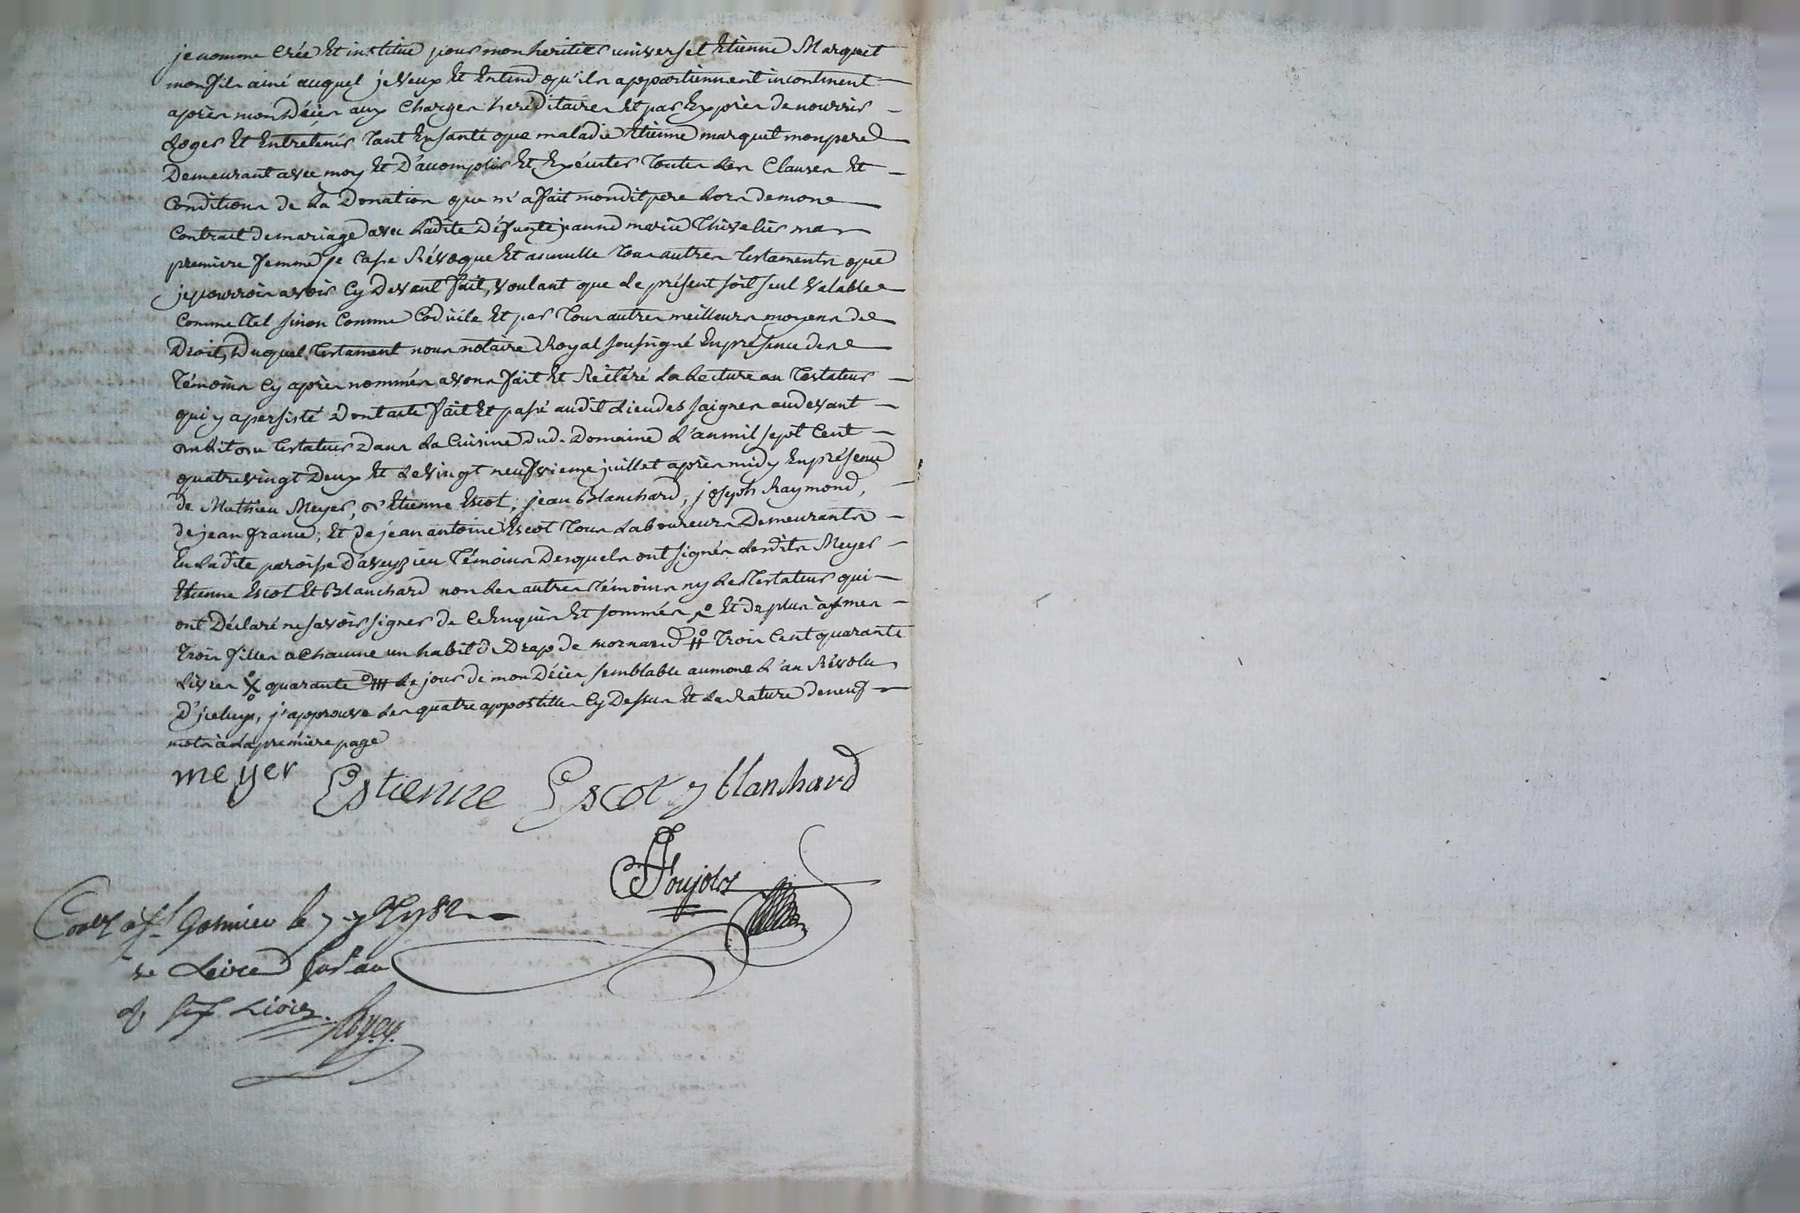 je nomme Crée Et institue pour mon heritier universel Etienne Marquet
mon fils ainé auquel je veux Et Entend qu'ils appartiennent incontinent
après mon Décès aux Charges héréditaires Et par Exprès de nourrir
Loger Et Entretenir tant En santé que maladie Etienne marquet mon pere
Demeurant avec moy Et D'accomplir Et Exécuter Toutes Les Clauses Et
Conditions de La Donation que m'a fait mondit pere Lors de mon
Contrat de mariage avec Ladite Défunte jeanne marie Thivelier ma
premiere femme je Casse Révoque Et annulle Tous autres testaments que
je pourrois avoir Cy Devant fait, voulant que Le présent soit seul Valable
Comme tel sinon Comme Codicile Et par Tous autres meilleurs moyens de
Droit, Duquel Testament nous notaire Royal soussigné En présence des
Témoins Cy après nommés avons fait Et Réitéré La Lecture au Testateur
qui y a persisté Dont acte fait Et passé audit Lieu des saignes au devant
du Testateur Dans La Cuisine dud. Domaine L'an mil sept Cent
quatrevingt Deux Et Le Vingt neufvieme juillet après midy En présence
de Mathieu Meyer, d'Etienne Escot, jean Blanchard, joseph Raymond,
de jean Et de jean antoine Escot Tous Laboureurs Demeurants
En Ladite paroisse D'aveyzieu Témoins Desquels ont signés Lesdits Meyer
Etienne Escot Et Blanchard non Les autres témoins ny Le Testateur qui
ont Déclaré ne savoir signer de Ce Enquis Et sommés Et De plus à mes
Trois filles a Chacune un habit de Drap de mornand # Trois Cent quarante
Livres quarante Le jour de mon Décès semblable aumone L'an Révolu
D'jceluy, j'approuve Les quatre appostilles Cy Dessus Et La Rature de neuf
mots à La premiere page
meyer Estienne Escot j blanchard
Poujols
Conlé à St Galmier le 7 7bre 1782